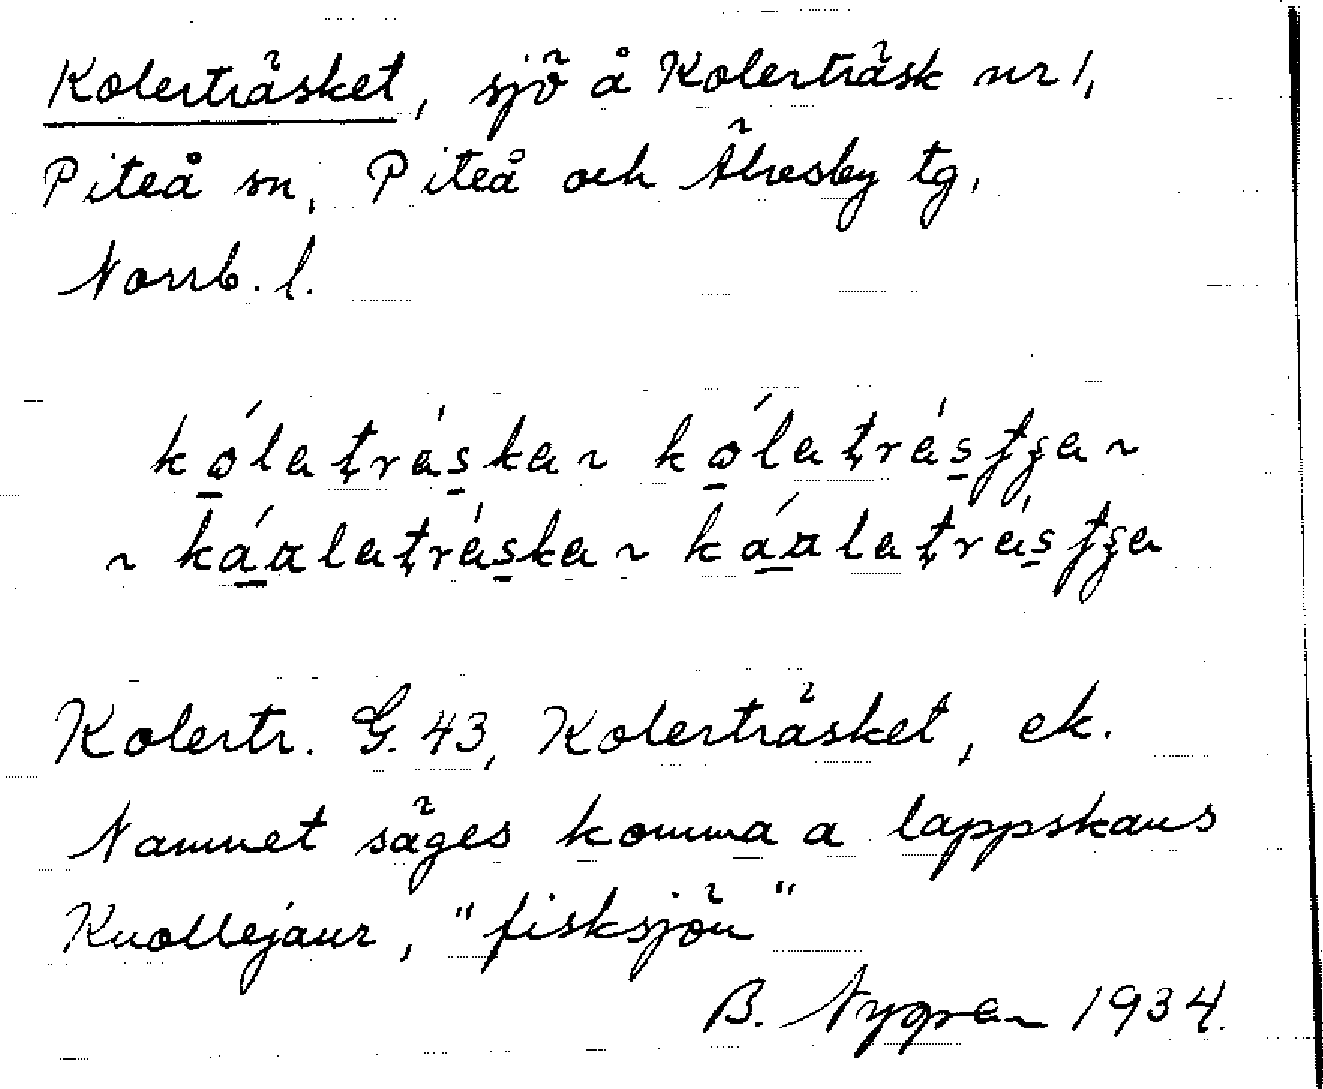 Kolerträsket, sjö å Kolerträsk nr 1,
Piteå sn, Piteå och Älvsby tg,
Norrb. l.
kólatráska ~ kólatrásʃʒa ~
~ káalatráska ~ káalatrásʃʒa
Kolertr. G. 43, Kolerträsket, ek.
Namnet säges komma a lappskans
Kuollejaur, "fisksjön"
B. Nygren 1934.